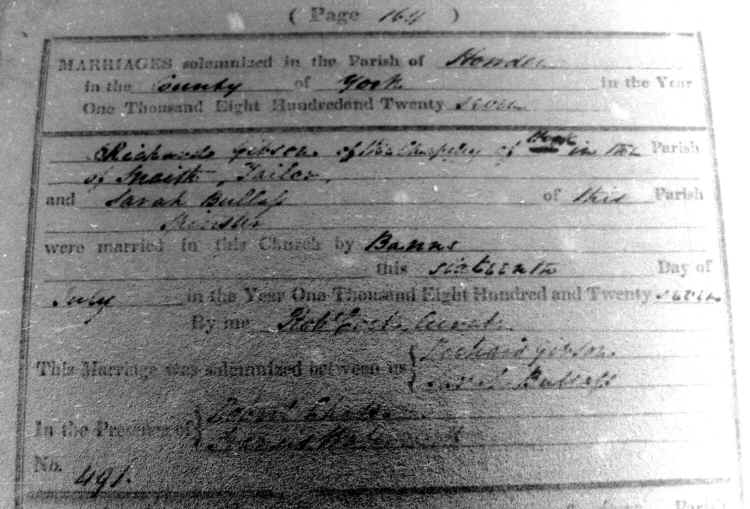 ( Page 164 )
MARRIAGES solemnized in the Parish of Howden
in the County of York in the Year
One Thousand Eight Hundred and Twenty seven
Richard Gibson of the Chapelry of in the Parish
of Snaith, Tailor,
and Sarah Bullass of this Parish
Spinster
were married in this Church by Banns
this sixteenth Day of
July in the Year One Thousand Eight Hundred and Twenty seven
By me Robt Curate.
This Marriage was solemnized between us Richard Gibson
Sarah Bullass
In the Presence of
No.
491.
Parish